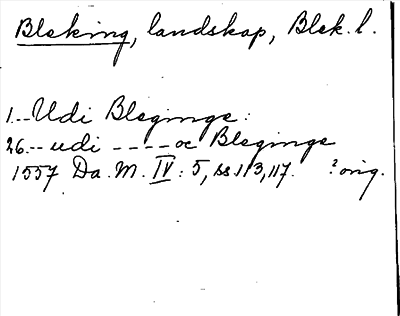 Bleking, landskap, Blek. l.
1.--Udi Bleginge:
26.--udi ----oc Bleginge
1557 Da. M. IV: 5, ss 113, 117. ? orig.